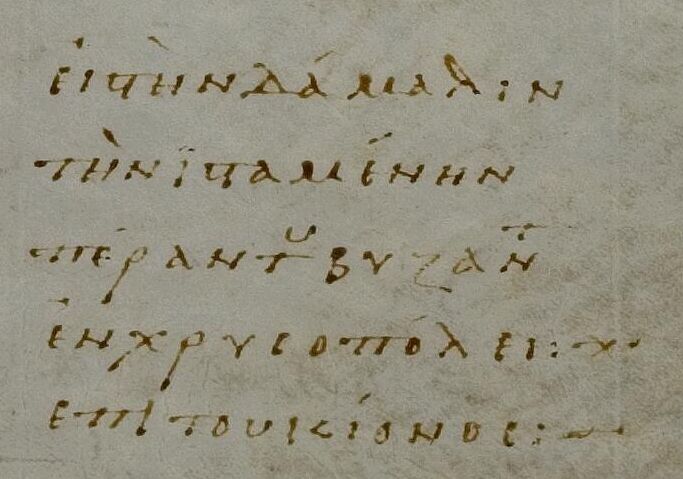 εἰϛὴν δάμαλιν
τὴν ἱϛαμένην
πέραν τȣ βυζαντ
ἐν χρυσοπόλει :
ἐπὶ του κίονος :~